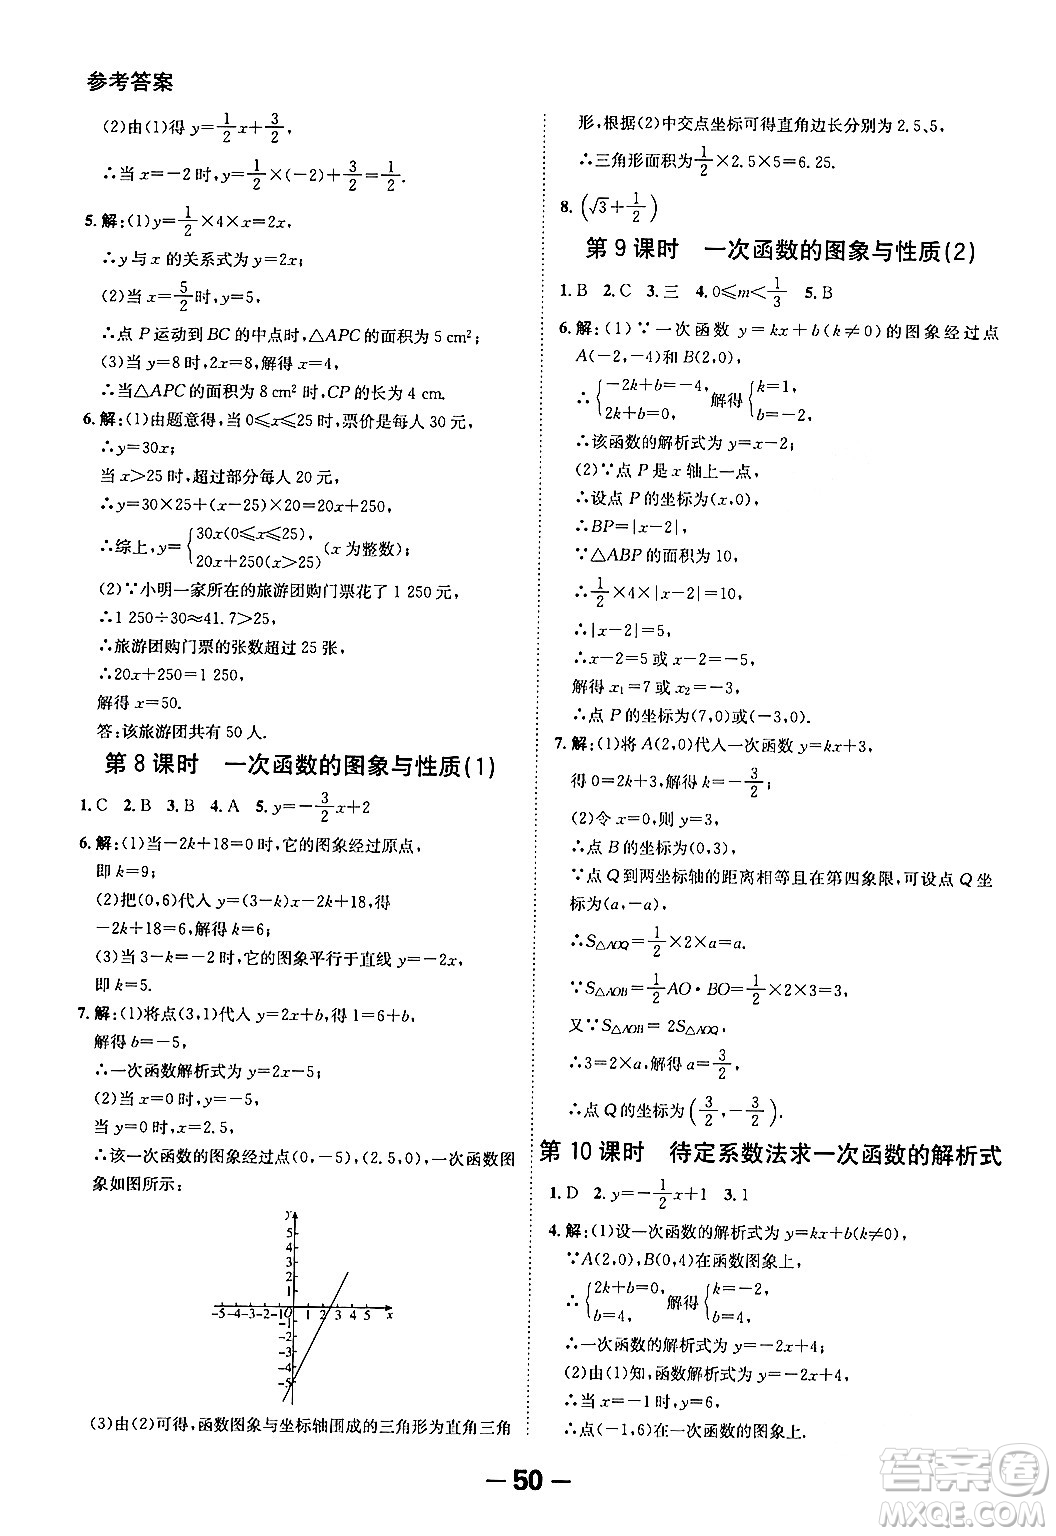 参考答案
(2)由(1)得 y=1/2x+3/2,
∴当 x=-2 时,y=1/2×(-2)+3/2=1/2.
5.解:(1)y=1/2×4×x=2x,
∴y 与 x 的关系式为 y=2x;
(2)当 x=5/2时,y=5,
∴点 P 运动到 BC 的中点时,△APC 的面积为 5 cm²;
(3)当 y=8 时,2x=8,解得 x=4,
∴当△APC 的面积为 8 cm² 时,CP 的长为 4 cm.
6.解:(1)由题意得,当 0⩽x⩽25 时,票价是每人 30 元,
∴y=30x;
当 x>25 时,超过部分每人 20 元,
∴y=30×25+(x-25)×20=20x+250.
∴综上,y={30x(0⩽x⩽25),
20x+250(x>25) (x 为整数)
(2)∵小明一家所在的旅游团购门票花了 1 250 元,
∴1 250÷30≈41.7>25,
∴旅游团购门票的张数超过 25 张,
∴20x+250=1 250,
解得 x=50.
答:该旅游团共有 50 人.
第 8 课时 一次函数的图象与性质(1)
1.C 2.B 3.B 4.A 5.y=-3/2x+2
6.解:(1)当-2k+18=0 时,它的图象经过原点,
即 k=9;
(2)把(0,6)代人 y=(3-k)x-2k+18,得
-2k+18=6,解得 k=6;
(3)当 3-k=-2 时,它的图象平行于直线 y=-2x,
即 k=5.
7.解:(1)将点(3,1)代人 y=2x+b,得 1=6+b,
解得 b=-5,
∴一次函数解析式为 y=2x-5;
(2)当 x=0 时,y=-5,
当 y=0 时,x=2.5,
∴该一次函数的图象经过点(0,-5),(2.5,0),一次函数图
象如图所示:
y
5
4
3
2
1
-5-4-3-2-1O 1 2 3 4 5 x
-1
-2
-3
-4
-5
(3)由(2)可得,函数图象与坐标轴围成的三角形为直角三角
形,根据(2)中交点坐标可得直角边长分别为 2.5、5,
∴三角形面积为1/2×2.5×5=6.25.
8.(√3+1/2)
第 9 课时 一次函数的图象与性质(2)
1.B 2.C 3.三 4.0⩽m<1/3 5.B
6.解:(1)∵一次函数 y=kx+b(k≠0)的图象经过点
A(-2,-4)和 B(2,0),
∴{-2k+b=-4, 解得{k=1,
2k+b=0, b=-2,
∴该函数的解析式为 y=x-2;
(2)∵点 P 是 x 轴上一点,
∴设点 P 的坐标为(x,0),
∴BP=|x-2|,
∵△ABP 的面积为 10,
∴1/2×4×|x-2|=10,
∴|x-2|=5,
∴x-2=5 或 x-2=-5,
解得 x₁=7 或 x₂=-3,
∴点 P 的坐标为(7,0)或(-3,0).
7.解:(1)将 A(2,0)代人一次函数 y=kx+3,
得 0=2k+3,解得 k=-3/2.
(2)令 x=0,则 y=3,
∴点 B 的坐标为(0,3),
∵点 Q 到两坐标轴的距离相等且在第四象限,可设点 Q 坐
标为(a,-a),
∴S△AOQ=1/2×2×a=a.
∵S△AOB=1/2AO·BO=1/2×2×3=3,
又∵S△AOB=2S△AOQ,
∴3=2×a,解得 a=3/2,
∴点 Q的坐标为(3/2,-3/2).
第 10 课时 待定系数法求一次函数的解析式
1.D 2.y=-1/2x+1 3.1
4.解:(1)设一次函数的解析式为 y=kx+b(k≠0),
∵A(2,0),B(0,4)在函数图象上,
∴{2k+b=0, 解得{k=-2,
b=4, b=4,
∴一次函数的解析式为 y=-2x+4;
(2)由(1)知,函数解析式为 y=-2x+4,
∴当 x=-1 时,y=6,
∴点(-1,6)在一次函数的图象上.
— 50 —
答案圈
MXQE.COM